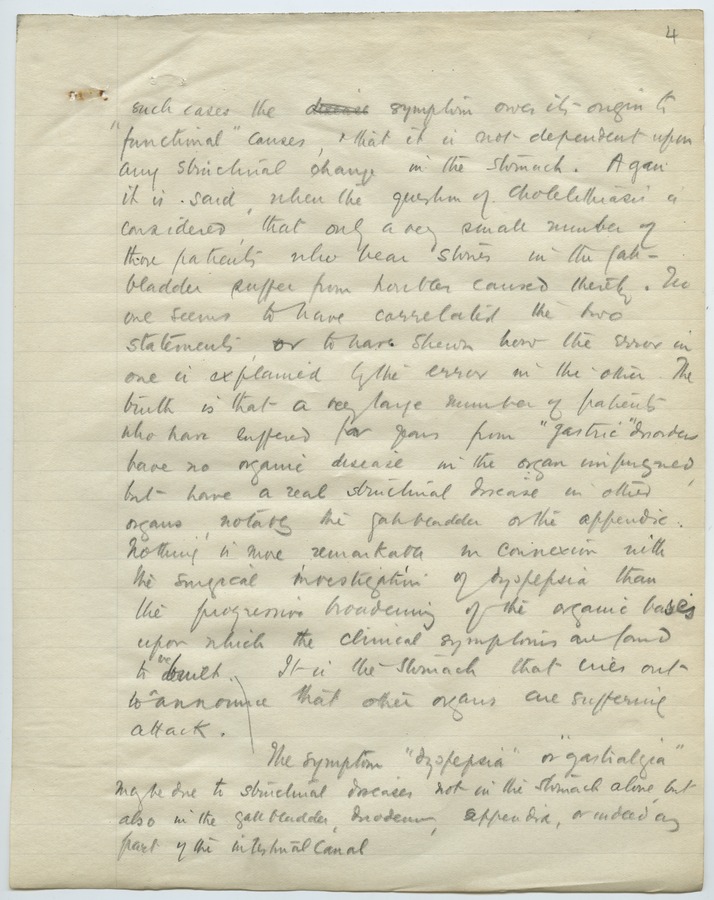 4
such cases the disease symptom owes its origin to
"functional" causes, & that it is not dependent upon
any structural change in the stomach. Again
it is said, when the question of Cholelithiasis is
considered, that only a very small number of
those patients who bear stones in the gall-
bladder suffer from troubles caused thereby. No
one seems to have correlated the two
statements, or to have shewn how the error in
one is explained by the error in the other. The
truth is that a very large number of patients
who have suffered for years from "gastric" disorders
have no organic disease in the organ impugned,
but have a real structural disease in other
organs, notably the gallbladder or the appendix.
Nothing is more remarkable in connexion with
the surgical investigation of dyspepsia than
the progressive broadening of the organic basis
upon which the clinical symptoms are found
to be built. It is the stomach that cries out
to announce that other organs are suffering
attack.
The symptom "dyspepsia" or "gastralgia"
may be due to structural diseases not in the stomach alone, but
also in the gallbladder, duodenum, appendix, or indeed any
part of the intestinal canal